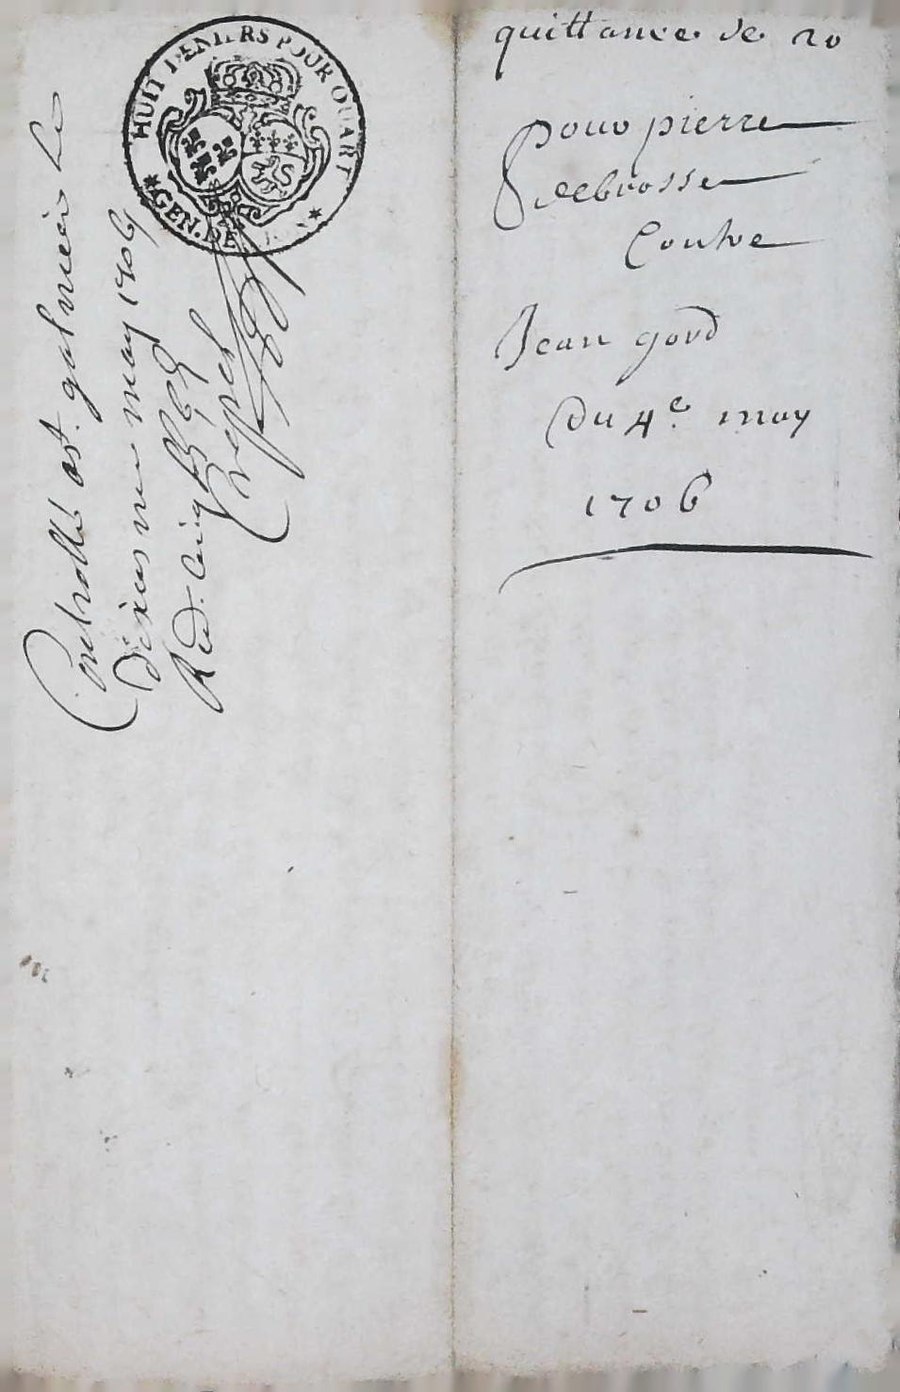 HUIT DENIERS POUR QUART
GEN. DE
Controllé a st. galmier le
dixiesme may 1706
Red. cinq
quittance de 20
pour pierre
debrosse
Contre
Jean gord
du 4e may
1706